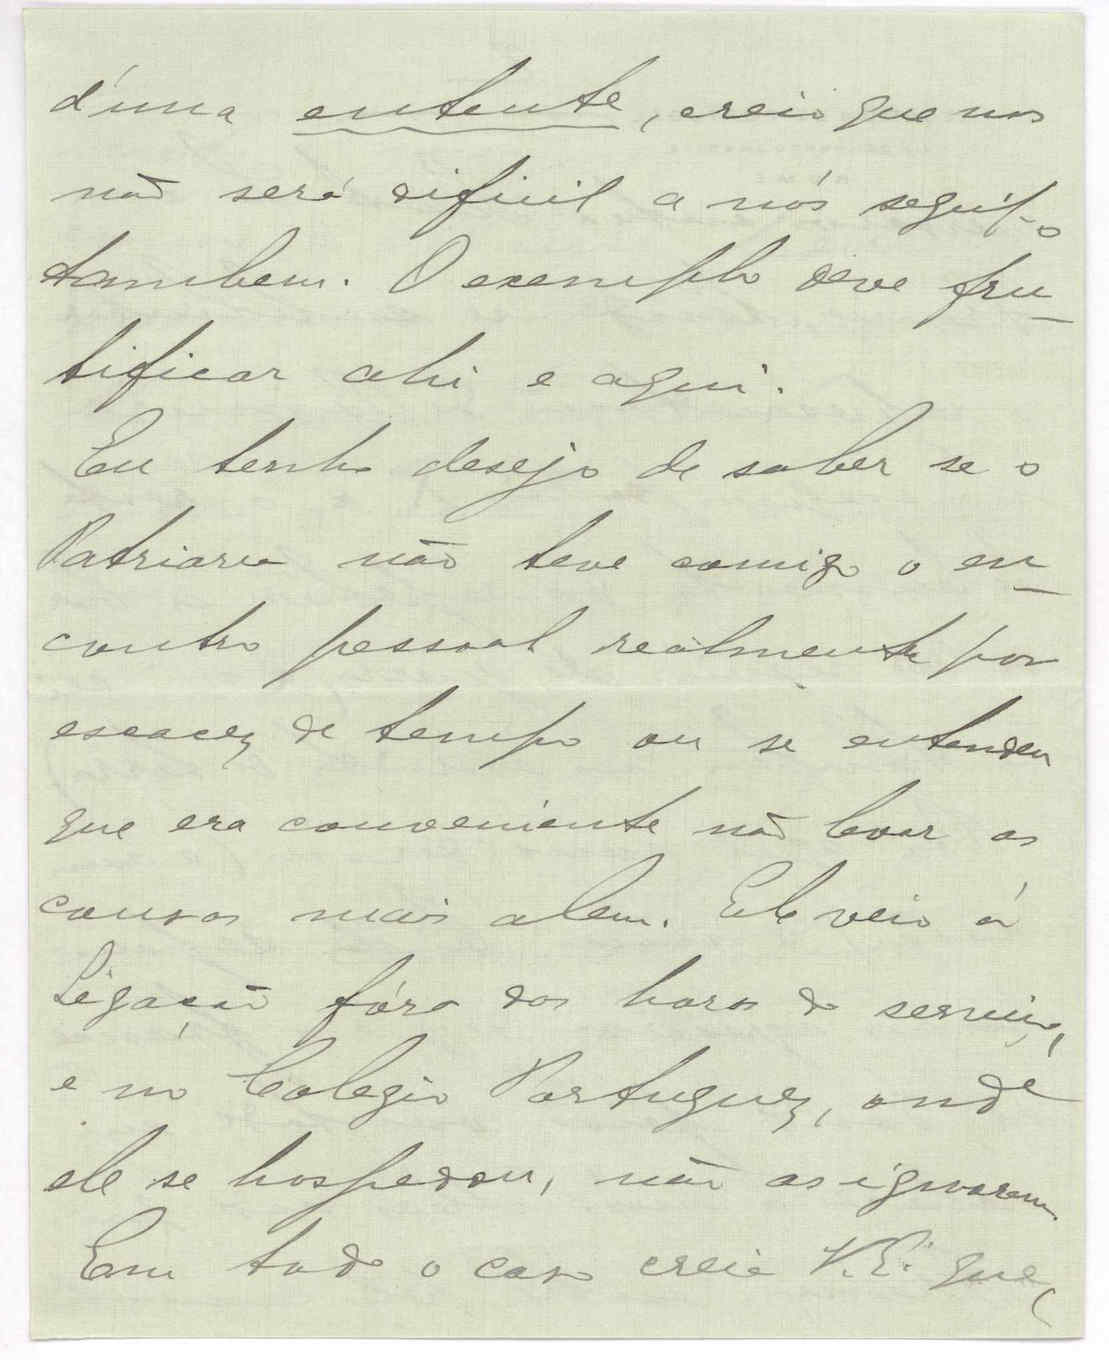 d'uma entente, creio que nos
não será dificil a nós seguil-o
tambem. O exemplo deve fru-
tificar ahi e aqui.
Eu tenho desejo de saber se o
Patriarca não teve comigo o en-
contro pessoal realmente por
escacez de tempo ou se entendeu
que era conveniente não levar as
cousas mais alem. Ele veio á
Legação fóra das horas de serviço,
e no Colegio Portuguez, onde
ele se hospedou, não as ignoram.
Em todo o caso creia V. E.ª que,